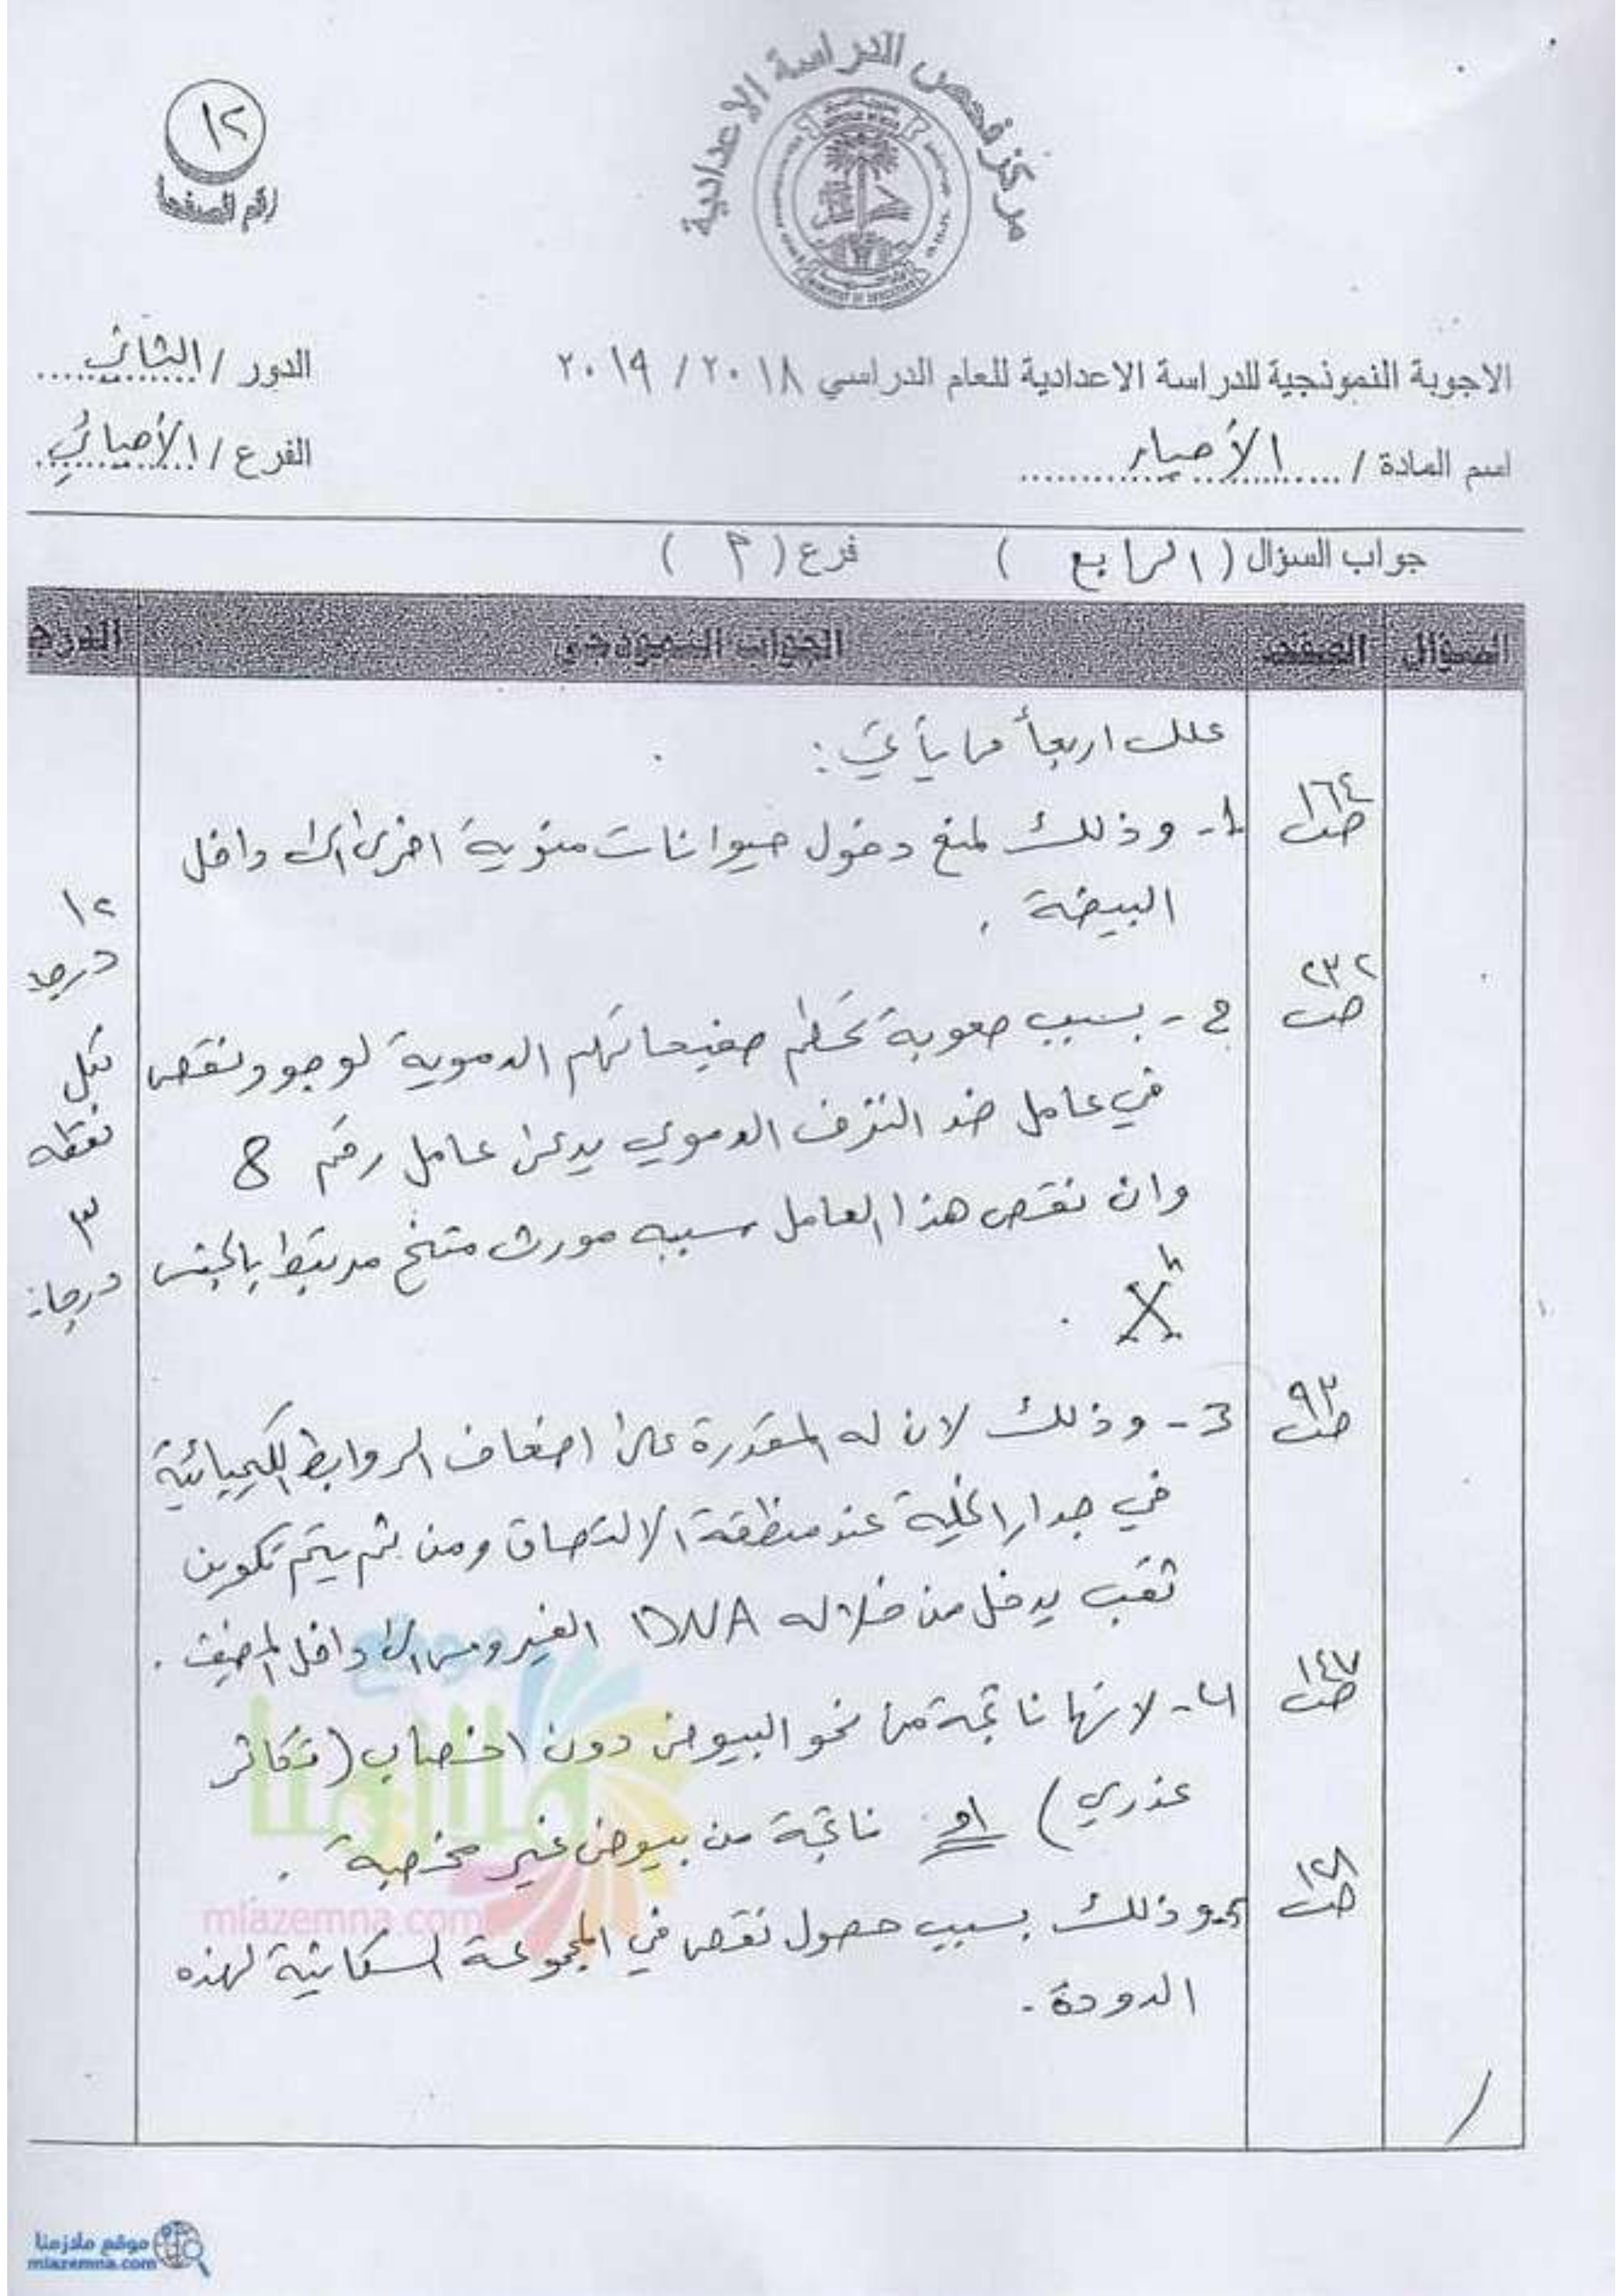 مركز فحص الدراسة الاعدادية
١٢
رقم الصفحة
الاجوبة النموذجية للدراسة الاعدادية للعام الدراسي ٢٠١٨ / ٢٠١٩
الدور / الثاني
اسم المادة / الأحياء
الفرع / الأحيائي
جواب السؤال ( الرابع ) فرع ( أ )
السؤال الصفحة الجواب النموذجي الدرجة
علل اربعاً مما يأتي :
ص١٦٤ 1- وذلك لمنع دخول حيوانات منوية اخرى الى داخل
البيضة .
١٢
درجة
ص٢٣٢ 2- بسبب صعوبة تحطم صفيحاتهم الدموية لوجود نقص
في عامل ضد النزف الدموي يدعى عامل رقم 8
وان نقص هذا العامل سببه مورث متنحي مرتبط بالجنس
Xʰ .
لكل
نقطة
٣
درجات
ص٩٣ 3- وذلك لان له المقدرة على اضعاف الروابط الكيميائية
في جدار الخلية عند منطقة الالتصاق ومن ثم يتم تكوين
ثقب يدخل من خلاله DNA الفيروس الى داخل المضيف .
ص١٤٧ 4- لانها ناتجة من نمو البيوض دون اخصاب (تكاثر
عذري) او ناتجة من بيوض غير مخصبة .
ص١٢٨ 5- وذلك بسبب حصول نقص في المجموعة السكانية لهذه
الدودة .
موقع
ملازمنا
mlazemna.com
موقع ملازمنا
mlazemna.com